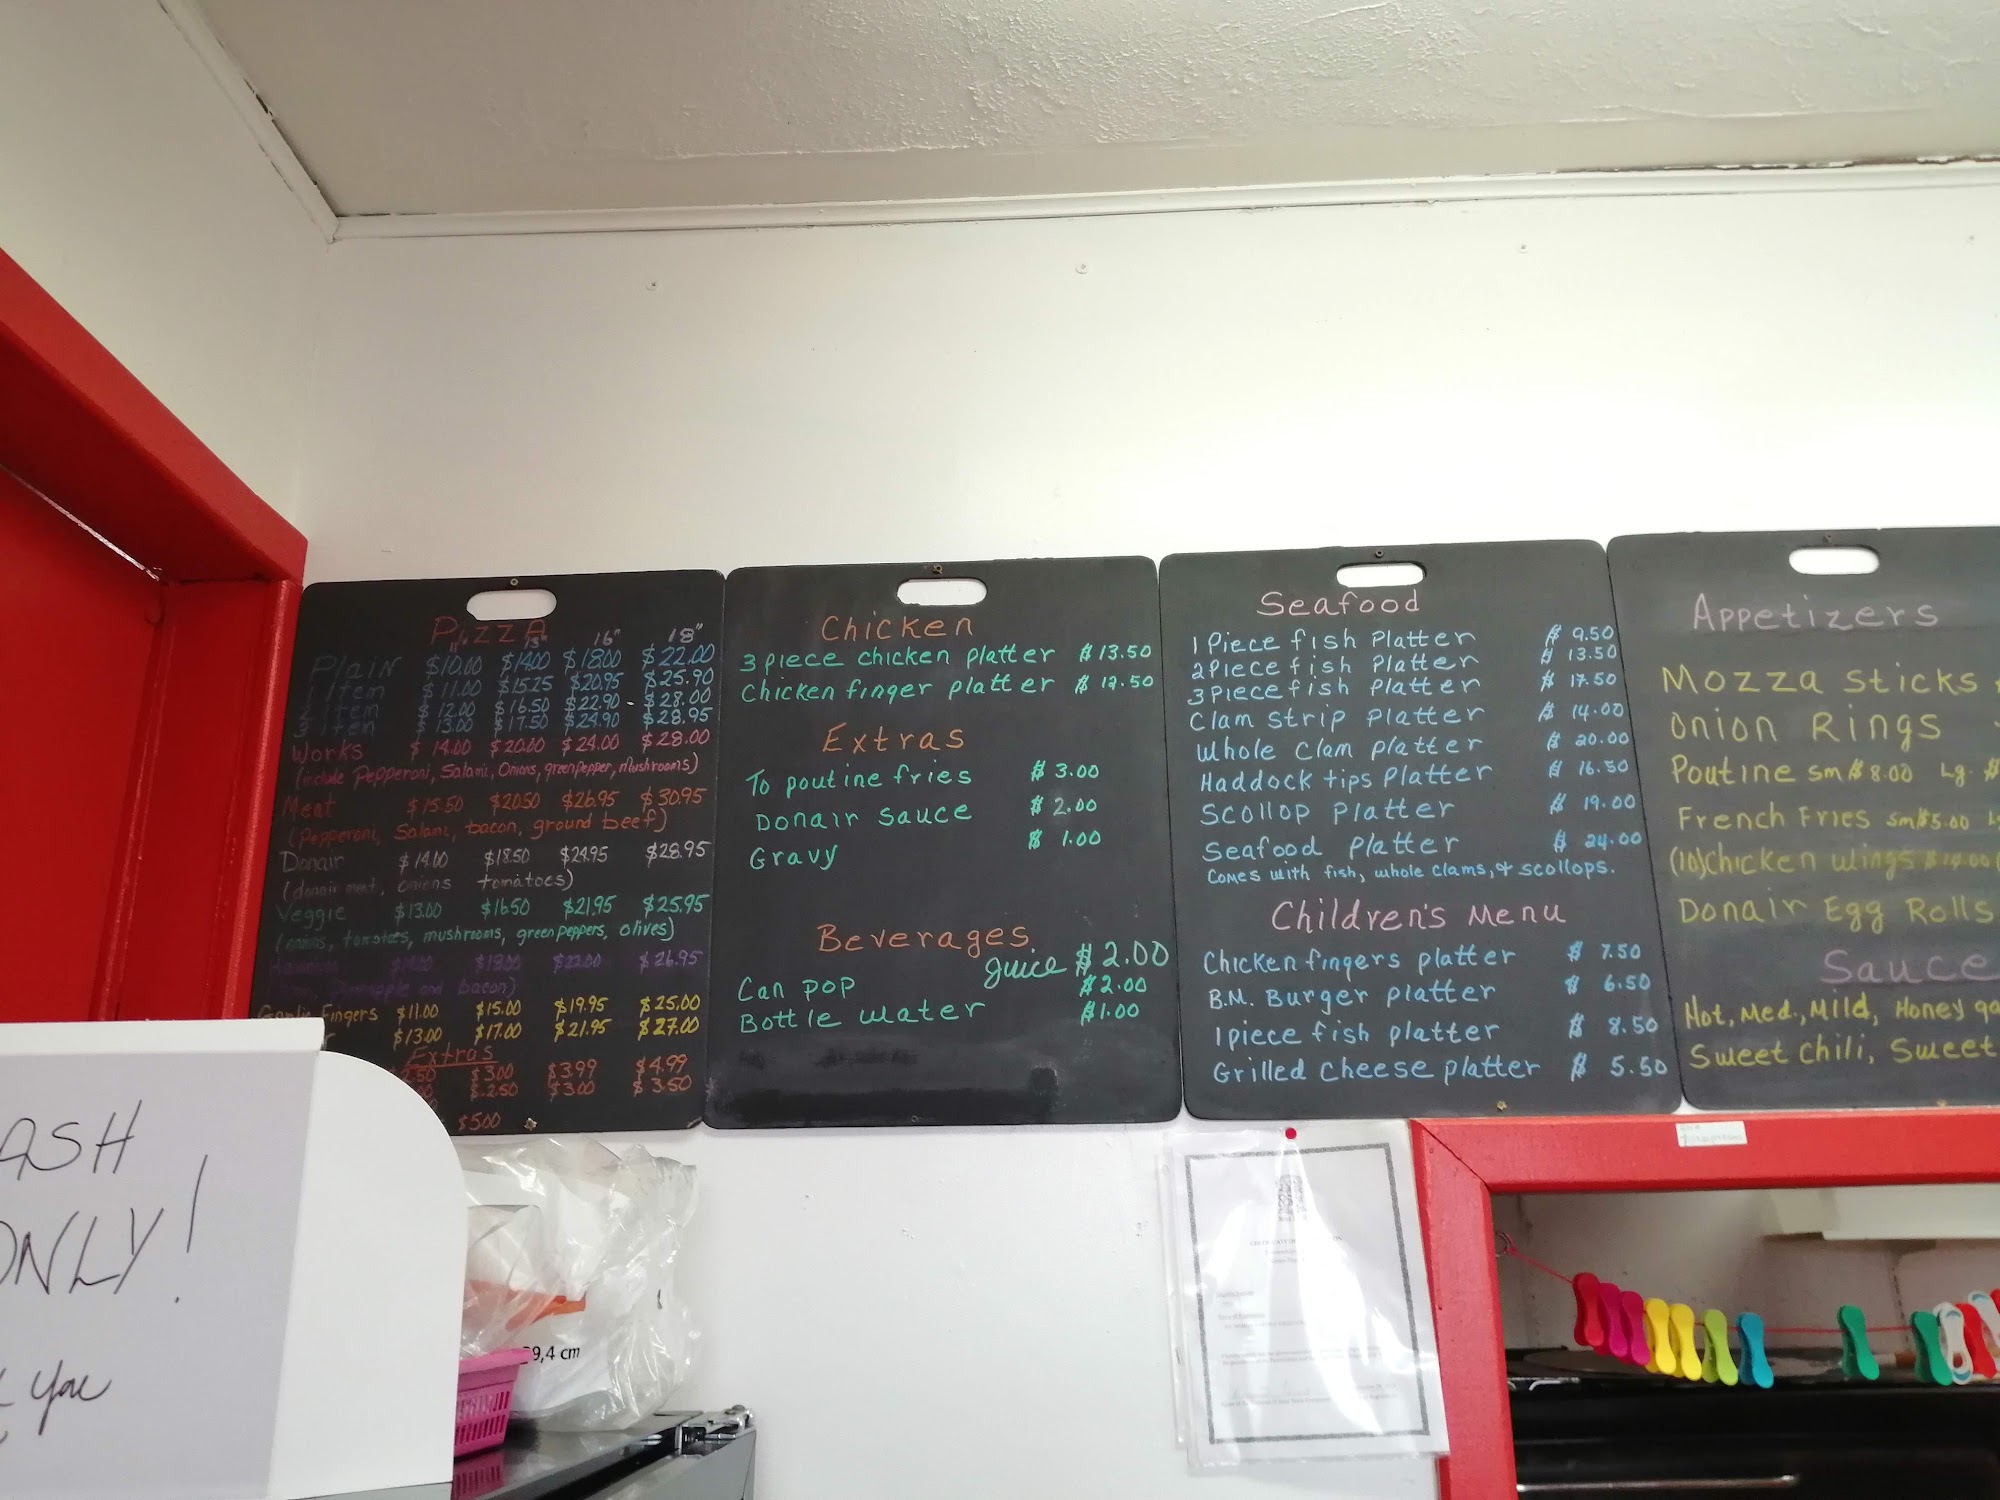 Pizza
11" 13" 16" 18"
Plain $10.00 $14.00 $18.00 $22.00
1 Item $11.00 $15.25 $20.95 $25.90
2 Item $12.00 $16.50 $22.90 $28.00
3 Item $13.00 $17.50 $24.90 $28.95
Works $14.00 $20.00 $24.00 $28.00
(include Pepperoni, Salami, Onions, green pepper, mushrooms)
Meat $15.50 $20.50 $26.95 $30.95
(Pepperoni, Salami, bacon, ground beef)
Donair $14.00 $18.50 $24.95 $28.95
(donair meat, onions tomatoes)
Veggie $13.00 $16.50 $21.95 $25.95
(onions, tomatoes, mushrooms, green peppers, olives)
$26.95
Pineapple and bacon)
Garlic Fingers $11.00 $15.00 $19.95 $25.00
$13.00 $17.00 $21.95 $27.00
Extras
2.50 $3.00 $3.99 $4.99
$2.50 $3.00 $3.50
$5.00
Chicken
3 piece chicken platter $13.50
Chicken finger platter $12.50
Extras
To poutine fries $3.00
Donair sauce $2.00
Gravy $1.00
Beverages
juice $2.00
Can pop $2.00
Bottle water $1.00
Seafood
1 Piece fish Platter $9.50
2 Piece fish Platter $13.50
3 Piece fish Platter $17.50
Clam strip platter $14.00
Whole Clam platter $20.00
Haddock tips Platter $16.50
Scollop Platter $19.00
Seafood Platter $24.00
Comes with fish, whole clams, & scollops.
Children's Menu
Chicken fingers platter $7.50
B.M. Burger platter $6.50
1 piece fish platter $8.50
Grilled cheese platter $5.50
Appetizers
Mozza Sticks
Onion Rings
Poutine sm $8.00 Lg. $
French Fries sm $5.00
(10) Chicken wings $14.00
Donair Egg Rolls
Sauce
Hot, Med., Mild, Honey ga
Sweet Chili, Sweet
ASH
ONLY!
you
9,4 cm